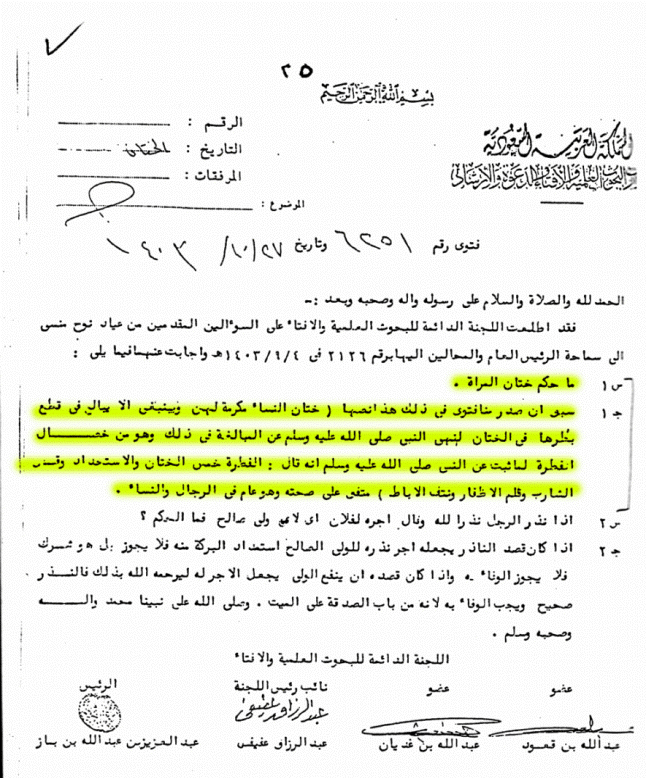 ٢٥
بسم الله الرحمن الرحيم
المملكة العربية السعودية
البحوث العلمية والافتاء والدعوة والارشاد
الرقم :
التاريخ : الختان
المرفقات :
الموضوع :
فتوى رقم ٦٢٥١ وتاريخ ٢٧/١٠/١٤٠٣
الحمد لله والصلاة والسلام على رسوله واله وصحبه وبعد :-
فقد اطلعت اللجنة الدائمة للبحوث العلمية والافتاء على السوالين المقدمين من عياد نوح منسى
الى سماحة الرئيس العام والمحالين اليها برقم ٢١٢٦ فى ١٤٠٣/٩/٤هـ واجابت عنهما فيما يلى :
س ١ ما حكم ختان المراة .
ج ١ سبق ان صدر منا فتوى فى ذلك هذا نصها ( ختان النساء مكرمة لهن وينبغى الا يبالغ فى قطع
بظرها فى الختان لنهى النبى صلى الله عليه وسلم عن المبالغة فى ذلك وهو من خصال
الفطرة لما ثبت عن النبى صلى الله عليه وسلم انه قال : الفطرة خمس الختان والاستحداد وقص
الشارب وقلم الاظفار ونتف الاباط ) متفق على صحته وهو عام فى الرجال والنساء .
س ٢ اذا نذر الرجل نذرا لله وقال اجره لفلان اى لاعى ولى صالح فما الحكم ؟
ج ٢ اذا كان قصد الناذر بجعله اجر نذره للولى الصالح استمداد البركة منه فلا يجوز بل هو شرك
فلا يجوز الوفاء به واذا كان قصده ان ينفع الولى بجعل الاجر له ليرحمه الله بذلك فالنذر
صحيح ويجب الوفاء به لانه من باب الصدقة على الميت . وصلى الله على نبينا محمد واله
وصحبه وسلم .
اللجنة الدائمة للبحوث العلمية والافتاء
عضو عضو نائب رئيس اللجنة الرئيس
عبد الله بن قعود عبد الله بن غديان عبد الرزاق عفيفى عبد العزيز بن عبد الله بن باز